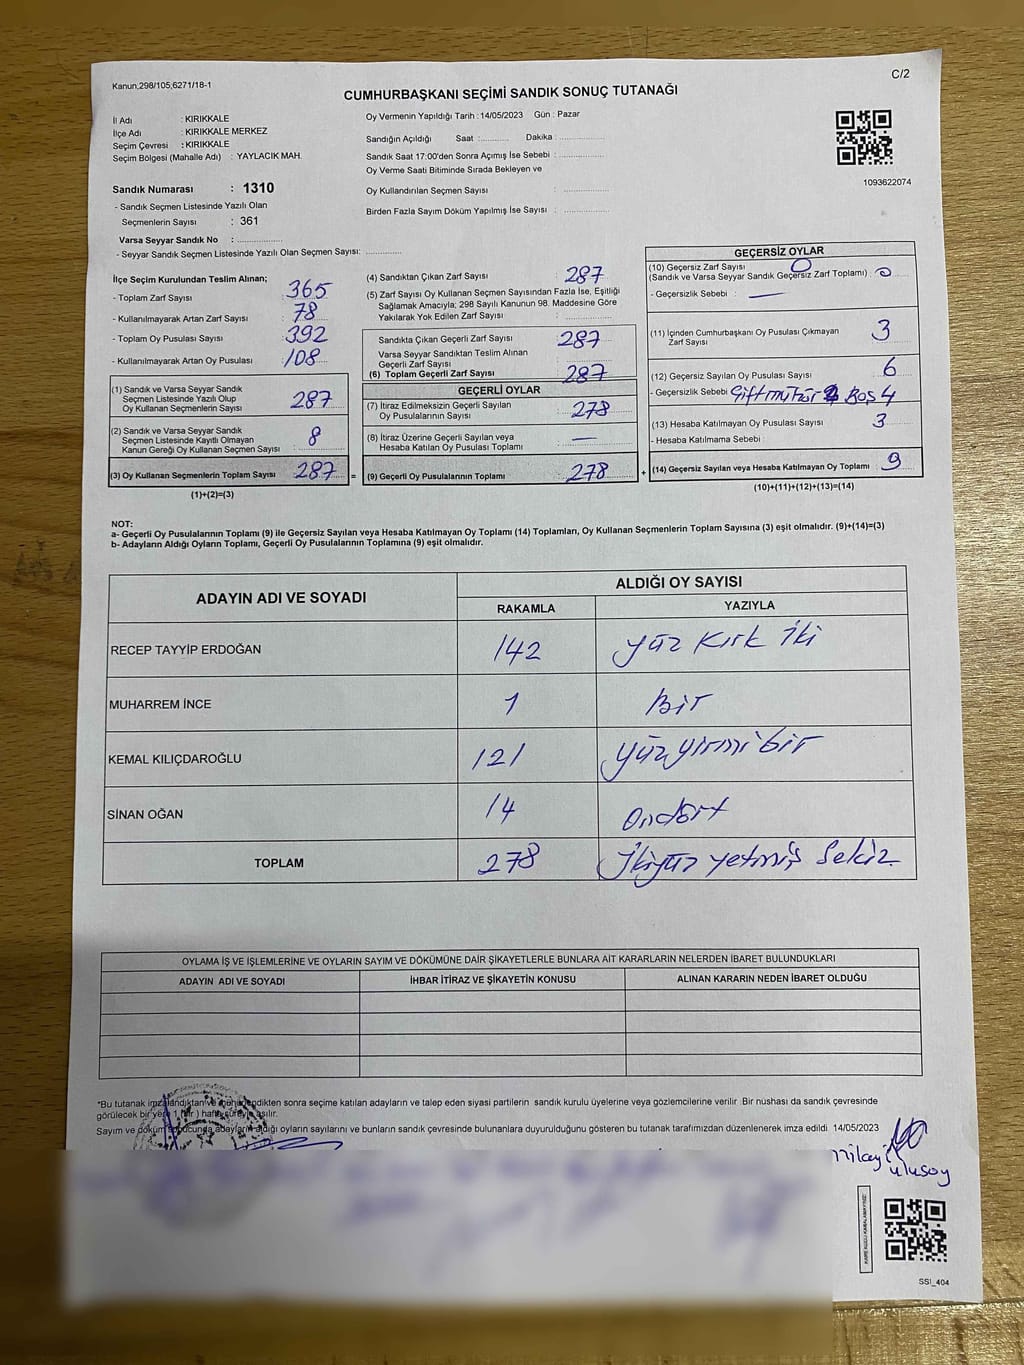 Kanun;298/105;6271/18-1
C/2
CUMHURBAŞKANI SEÇİMİ SANDIK SONUÇ TUTANAĞI
İl Adı : KIRIKKALE
İlçe Adı : KIRIKKALE MERKEZ
Seçim Çevresi : KIRIKKALE
Seçim Bölgesi (Mahalle Adı) : YAYLACIK MAH.
Sandık Numarası : 1310
- Sandık Seçmen Listesinde Yazılı Olan
Seçmenlerin Sayısı : 361
Varsa Seyyar Sandık No : ................
- Seyyar Sandık Seçmen Listesinde Yazılı Olan Seçmen Sayısı: ............
Oy Vermenin Yapıldığı Tarih : 14/05/2023 Gün : Pazar
Sandığın Açıldığı Saat :.......... Dakika :................
Sandık Saat 17:00'den Sonra Açımış İse Sebebi : ................
Oy Verme Saati Bitiminde Sırada Bekleyen ve
Oy Kullandırılan Seçmen Sayısı : ................
Birden Fazla Sayım Döküm Yapılmış İse Sayısı : ................
1093622074
İlçe Seçim Kurulundan Teslim Alınan;
- Toplam Zarf Sayısı : 365
- Kullanılmayarak Artan Zarf Sayısı : 78
- Toplam Oy Pusulası Sayısı : 392
- Kullanılmayarak Artan Oy Pusulası : 108
(1) Sandık ve Varsa Seyyar Sandık
Seçmen Listesinde Yazılı Olup
Oy Kullanan Seçmenlerin Sayısı : 287
(2) Sandık ve Varsa Seyyar Sandık
Seçmen Listesinde Kayıtlı Olmayan
Kanun Gereği Oy Kullanan Seçmen Sayısı : 8
(3) Oy Kullanan Seçmenlerin Toplam Sayısı : 287 =
(1)+(2)=(3)
(4) Sandıktan Çıkan Zarf Sayısı : 287
(5) Zarf Sayısı Oy Kullanan Seçmen Sayısından Fazla İse, Eşitliği
Sağlamak Amacıyla; 298 Sayılı Kanunun 98. Maddesine Göre
Yakılarak Yok Edilen Zarf Sayısı : ................
Sandıkta Çıkan Geçerli Zarf Sayısı : 287
Varsa Seyyar Sandıktan Teslim Alınan
Geçerli Zarf Sayısı
(6) Toplam Geçerli Zarf Sayısı : 287
GEÇERLİ OYLAR
(7) İtiraz Edilmeksizin Geçerli Sayılan
Oy Pusulalarının Sayısı : 278
(8) İtiraz Üzerine Geçerli Sayılan veya
Hesaba Katılan Oy Pusulası Toplamı : —
(9) Geçerli Oy Pusulalarının Toplamı : 278 +
GEÇERSİZ OYLAR
(10) Geçersiz Zarf Sayısı 0
(Sandık ve Varsa Seyyar Sandık Geçersiz Zarf Toplamı) : 0
- Geçersizlik Sebebi : —
(11) İçinden Cumhurbaşkanı Oy Pusulası Çıkmayan
Zarf Sayısı : 3
(12) Geçersiz Sayılan Oy Pusulası Sayısı : 6
- Geçersizlik Sebebi Çift mühür 2 Boş 4
(13) Hesaba Katılmayan Oy Pusulası Sayısı : 3
- Hesaba Katılmama Sebebi :
(14) Geçersiz Sayılan veya Hesaba Katılmayan Oy Toplamı : 9
(10)+(11)+(12)+(13)=(14)
NOT:
a- Geçerli Oy Pusulalarının Toplamı (9) ile Geçersiz Sayılan veya Hesaba Katılmayan Oy Toplamı (14) Toplamları, Oy Kullanan Seçmenlerin Toplam Sayısına (3) eşit olmalıdır. (9)+(14)=(3)
b- Adayların Aldığı Oyların Toplamı, Geçerli Oy Pusulalarının Toplamına (9) eşit olmalıdır.
ADAYIN ADI VE SOYADI
ALDIĞI OY SAYISI
RAKAMLA YAZIYLA
RECEP TAYYİP ERDOĞAN 142 Yüz Kırk iki
MUHARREM İNCE 1 Bir
KEMAL KILIÇDAROĞLU 121 Yüzyirmibir
SİNAN OĞAN 14 Ondört
TOPLAM 278 İkiyüz yetmiş Sekiz
OYLAMA İŞ VE İŞLEMLERİNE VE OYLARIN SAYIM VE DÖKÜMÜNE DAİR ŞİKAYETLERLE BUNLARA AİT KARARLARIN NELERDEN İBARET BULUNDUKLARI
ADAYIN ADI VE SOYADI İHBAR İTİRAZ VE ŞİKAYETİN KONUSU ALINAN KARARIN NEDEN İBARET OLDUĞU
*Bu tutanak imzalandıktan ve mühürlendikten sonra seçime katılan adayların ve talep eden siyasi partilerin sandık kurulu üyelerine veya gözlemcilerine verilir. Bir nüshası da sandık çevresinde
görülecek bir yere 1 (bir) hafta süreyle asılır.
Sayım ve döküm sonucunda adayların aldığı oyların sayılarını ve bunların sandık çevresinde bulunanlara duyurulduğunu gösteren bu tutanak tarafımızdan düzenlenerek imza edildi 14/05/2023
ulusoy
KARE KODU KARALAMAYINIZ!
SSİ_404